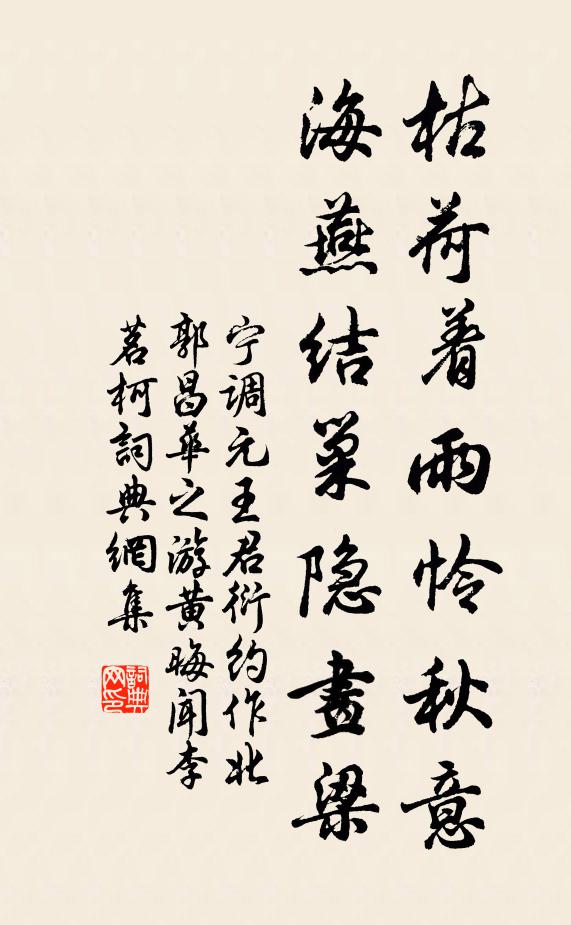 枯荷着雨怜秋意
海燕结巢隐畫梁
宁调元王君衍约作北
郭昌華之游黄晦闻李
茗柯詞典網集
詞典
网印